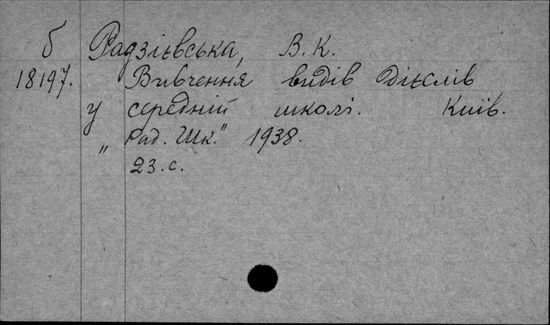 б Радзієвська, В. К.
18197. Вивчення видів дієслів
у середній школі. Київ.
„Рад. Шк." 1938.
23. с.